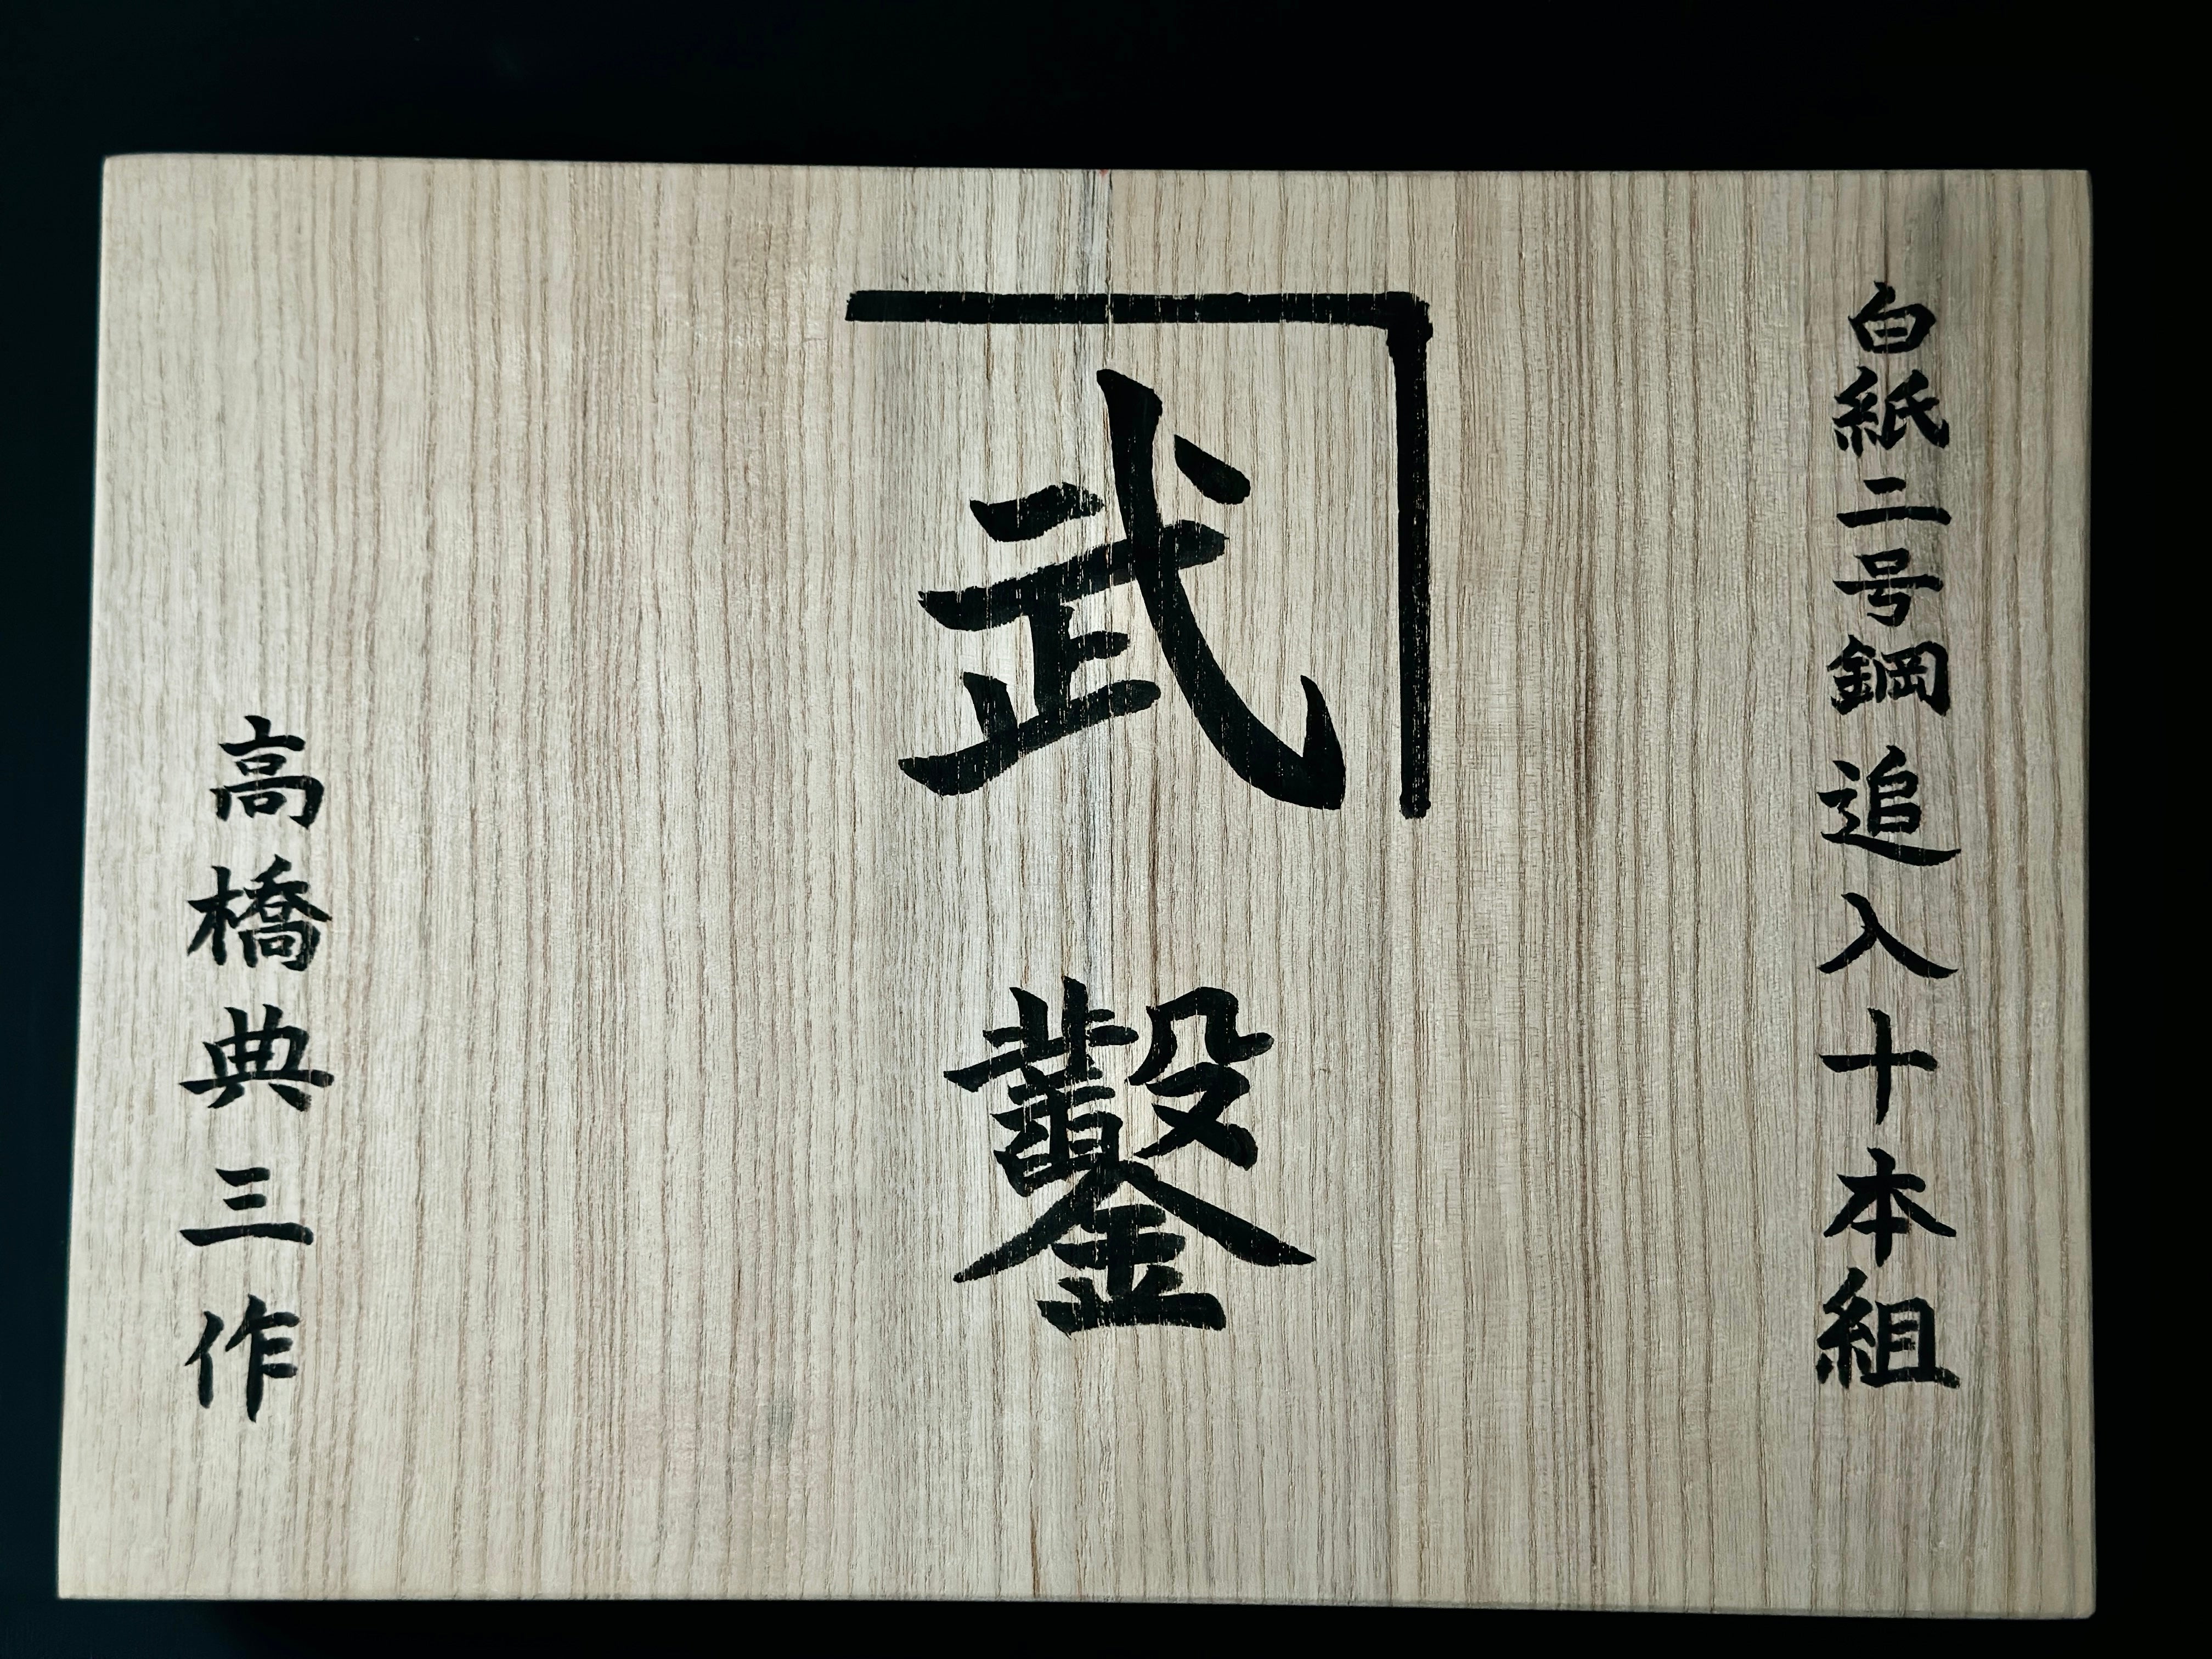 白紙二号鋼 追入十本組
武鑿
高橋典三作